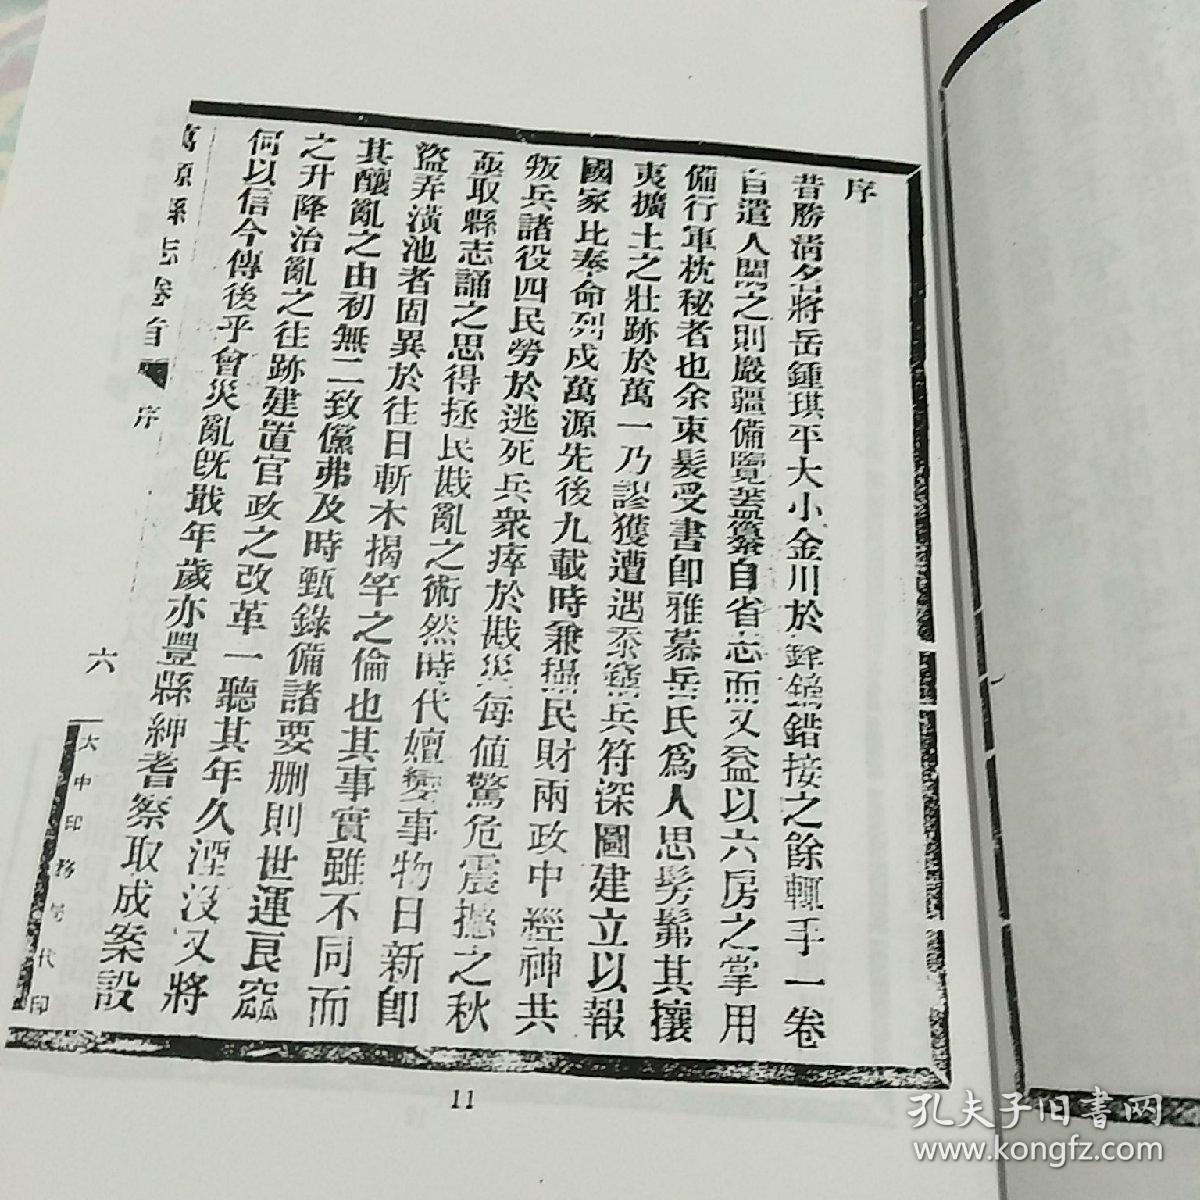 序
昔勝淸名將岳鍾琪平大小金川於鋒鏑錯接之餘輒手一卷
自遣人闚之則嚴疆備覽蓋纂自省志而又益以六房之掌用
備行軍枕秘者也余束髮受書卽雅慕岳氏爲人思髣髴其攘
夷擴土之壯跡於萬一乃謬獲遭遇忝竊兵符深圖建立以報
國家比奉命列戍萬源先後九載時兼攝民財兩政中經神共
叛兵諸役四民勞於逃死兵衆瘁於戡災每値驚危震撼之秋
亟取縣志誦之思得拯民戡亂之術然時代嬗變事物日新卽
盜弄潢池者固異於往日斬木揭竿之倫也其事實雖不同而
其釀亂之由初無二致儻弗及時甄錄備諸要删則世運艮窳
之升降治亂之往跡建置官政之改革一聽其年久湮沒又將
何以信今傳後乎會災亂旣戢年歲亦豐縣紳耆察取成案設
萬源縣志卷首 序
六
大中印務局代印
11
孔夫子旧书网
www.kongfz.com